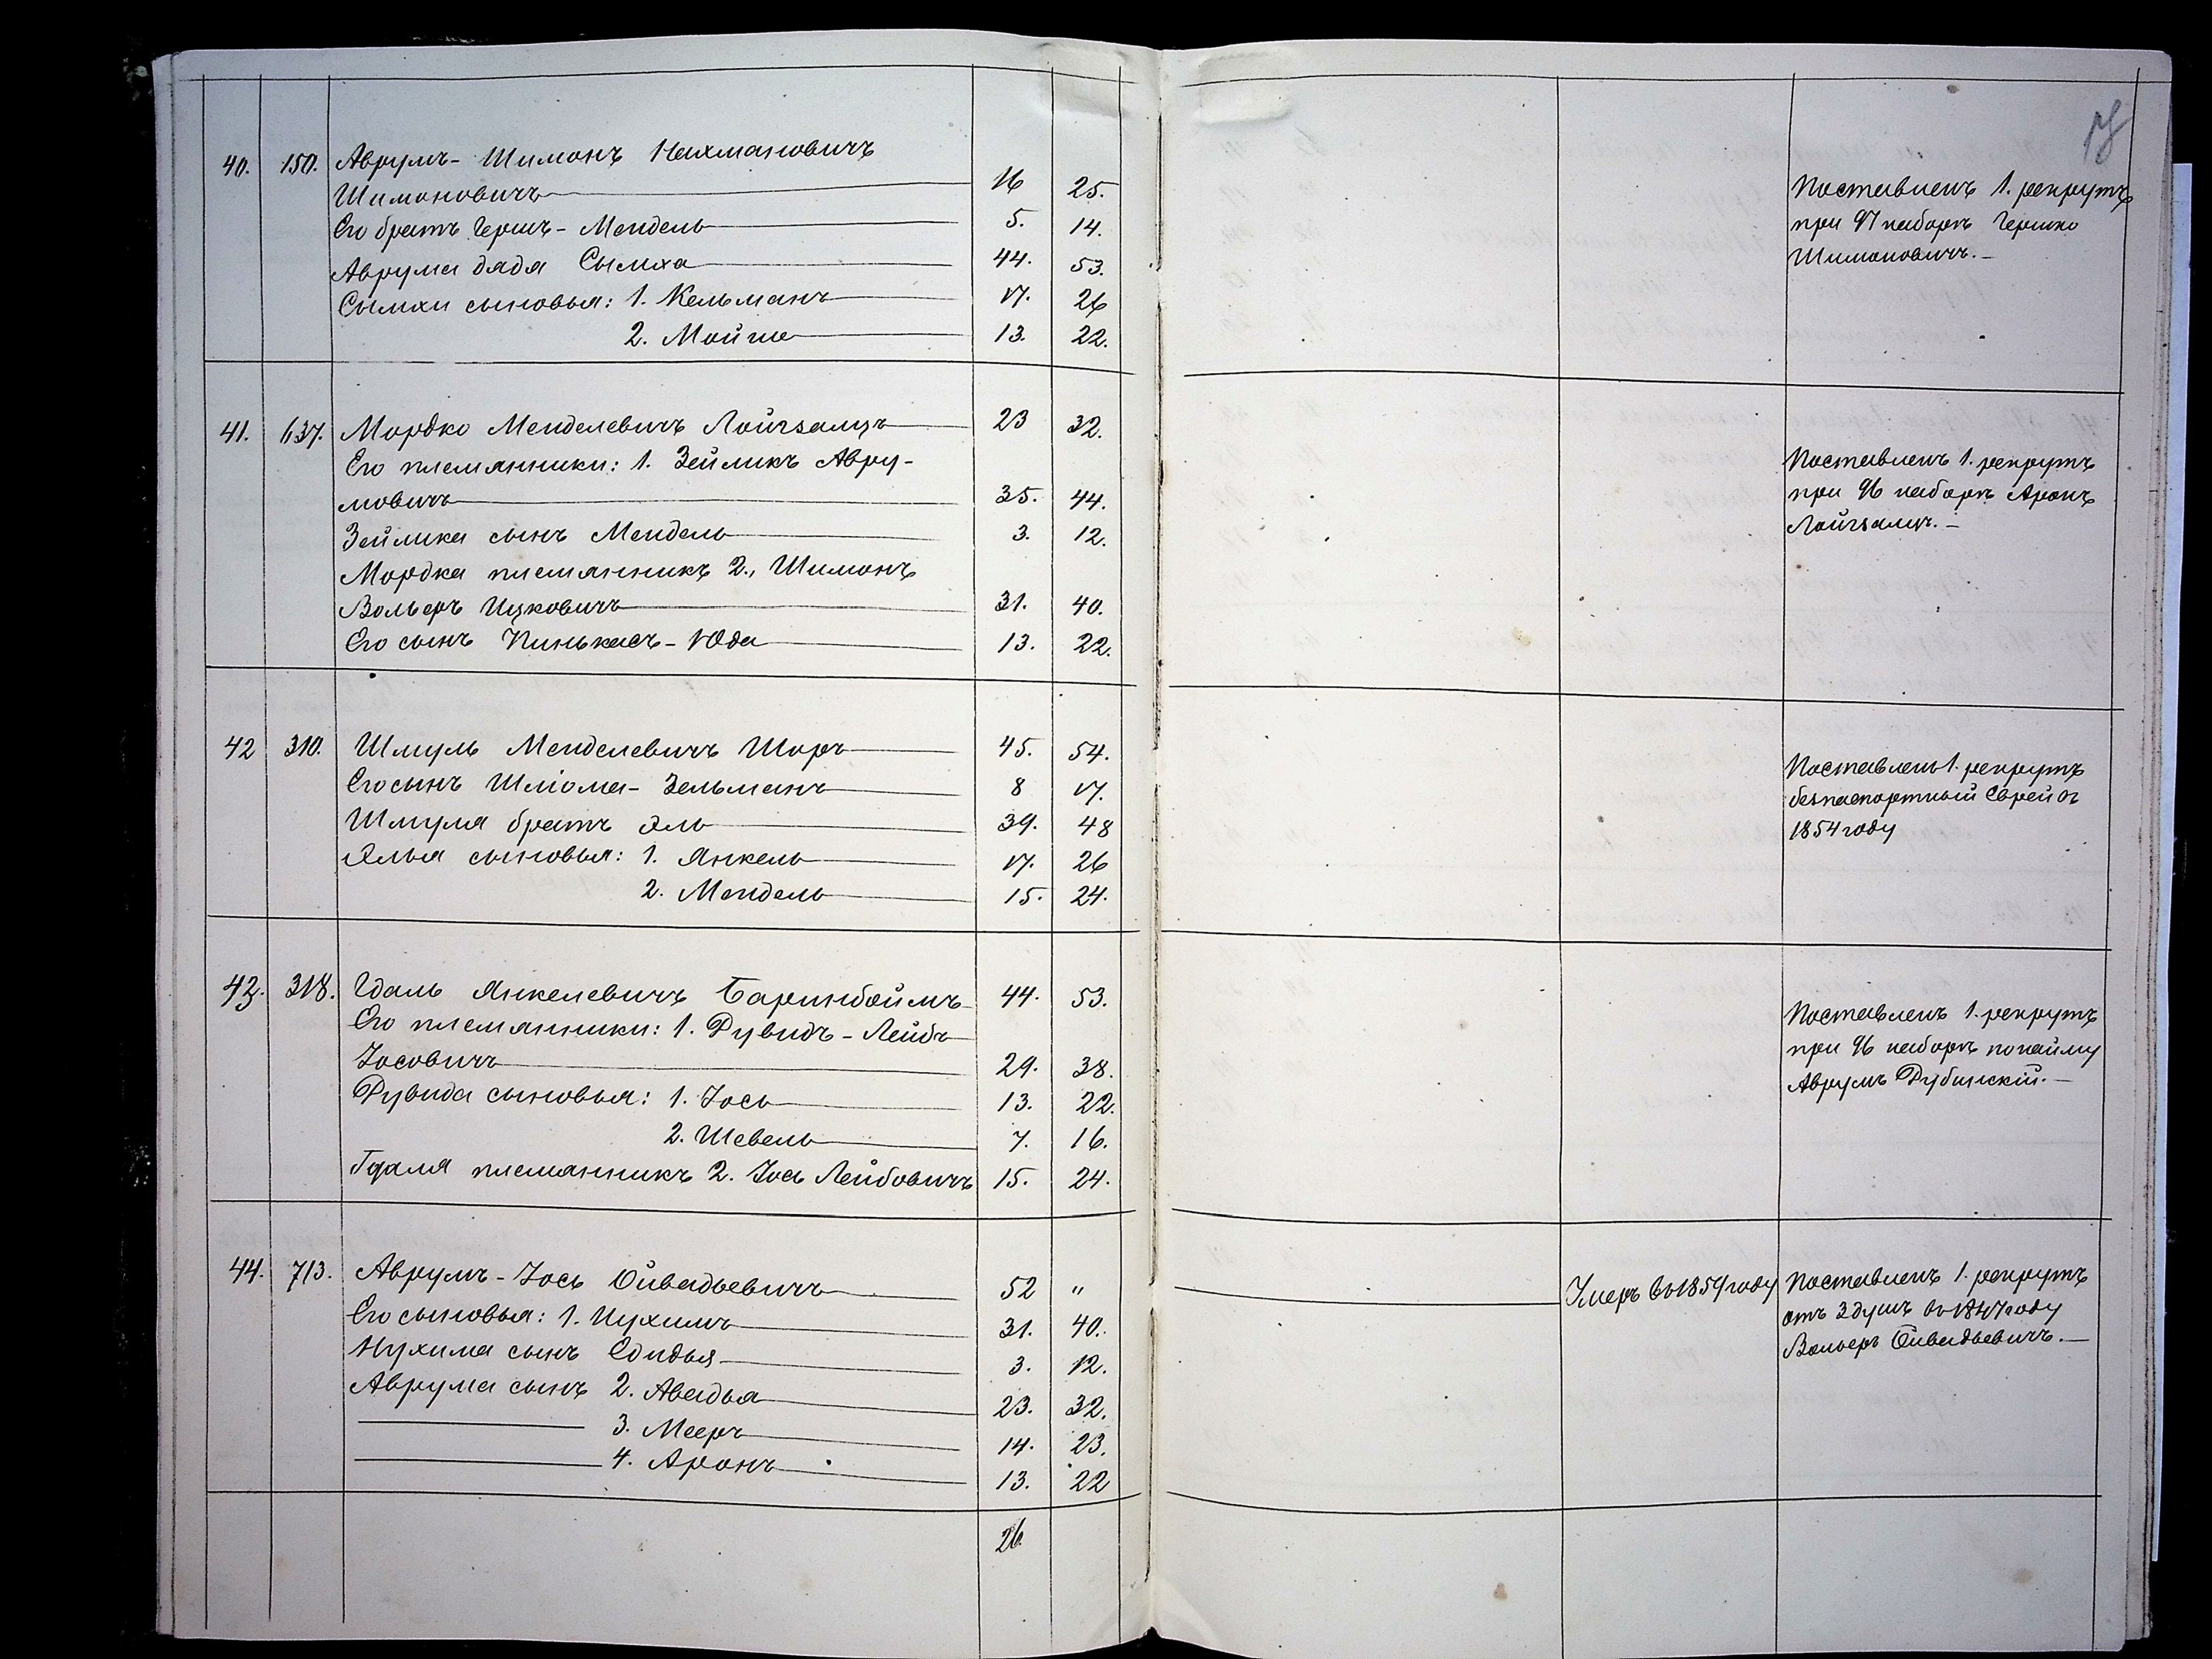 40. 150. Аврумъ-Шимонъ Нахмановичъ
Шимоновичъ 16 25.
Его братъ Гершъ-Мендель 5. 14.
Аврума дядя Сымха 44. 53.
Сымхи сыновья: 1. Кельманъ 17. 26
2. Мойше 13. 22.
Поставленъ 1. рекрутъ
при 97 наборѣ Гершко
Шимоновичъ.
41. 637. Мордко Менделевичъ Лойгзамъ 23 32.
Его племянники: 1. Зейликъ Авру-
мовичъ 35. 44.
Зейлика сынъ Мендель 3. 12.
Мордка племянникъ 2., Шимонъ
Вольфъ Ицковичъ 31. 40.
Его сынъ Пинькасъ-Юда 13. 22.
Поставленъ 1. рекрутъ
при 96 наборѣ Аронъ
42 310. Шмуль Менделевичъ Шоръ 45. 54.
Его сынъ Шліома-Зельманъ 8 17.
Шмуля братъ Эль 39. 48
Элья сыновья: 1. Янкель 17. 26
2. Мендель 15. 24.
Поставленъ 1. рекрутъ
безпаспортный Еврей въ
1854 году
43. 318. Гдаль Янкелевичъ Баринбоймъ 44. 53.
Его племянники: 1. Рувидъ-Лейбъ
Іосовичъ 29. 38.
Рувида сыновья: 1. Іось 13. 22.
2. Шевель 7. 16.
Гдаля племянникъ 2. Іось Лейбовичъ 15. 24.
Поставленъ 1. рекрутъ
при 96 наборѣ по найму
Аврумъ Рубинскій.
44. 713. Аврумъ-Іось Ойвадьевичъ 52 "
Его сыновья: 1. Нухимъ 31. 40.
Нухима сынъ 3. 12.
Аврума сынъ 2. Авадья 23. 32.
3. Мееръ 14. 23.
4. Аронъ 13. 22
Умеръ въ 1859 году
Поставленъ 1. рекрутъ
отъ 3 душъ въ 1847 году
Вольфъ Ойвадьевичъ.
26.